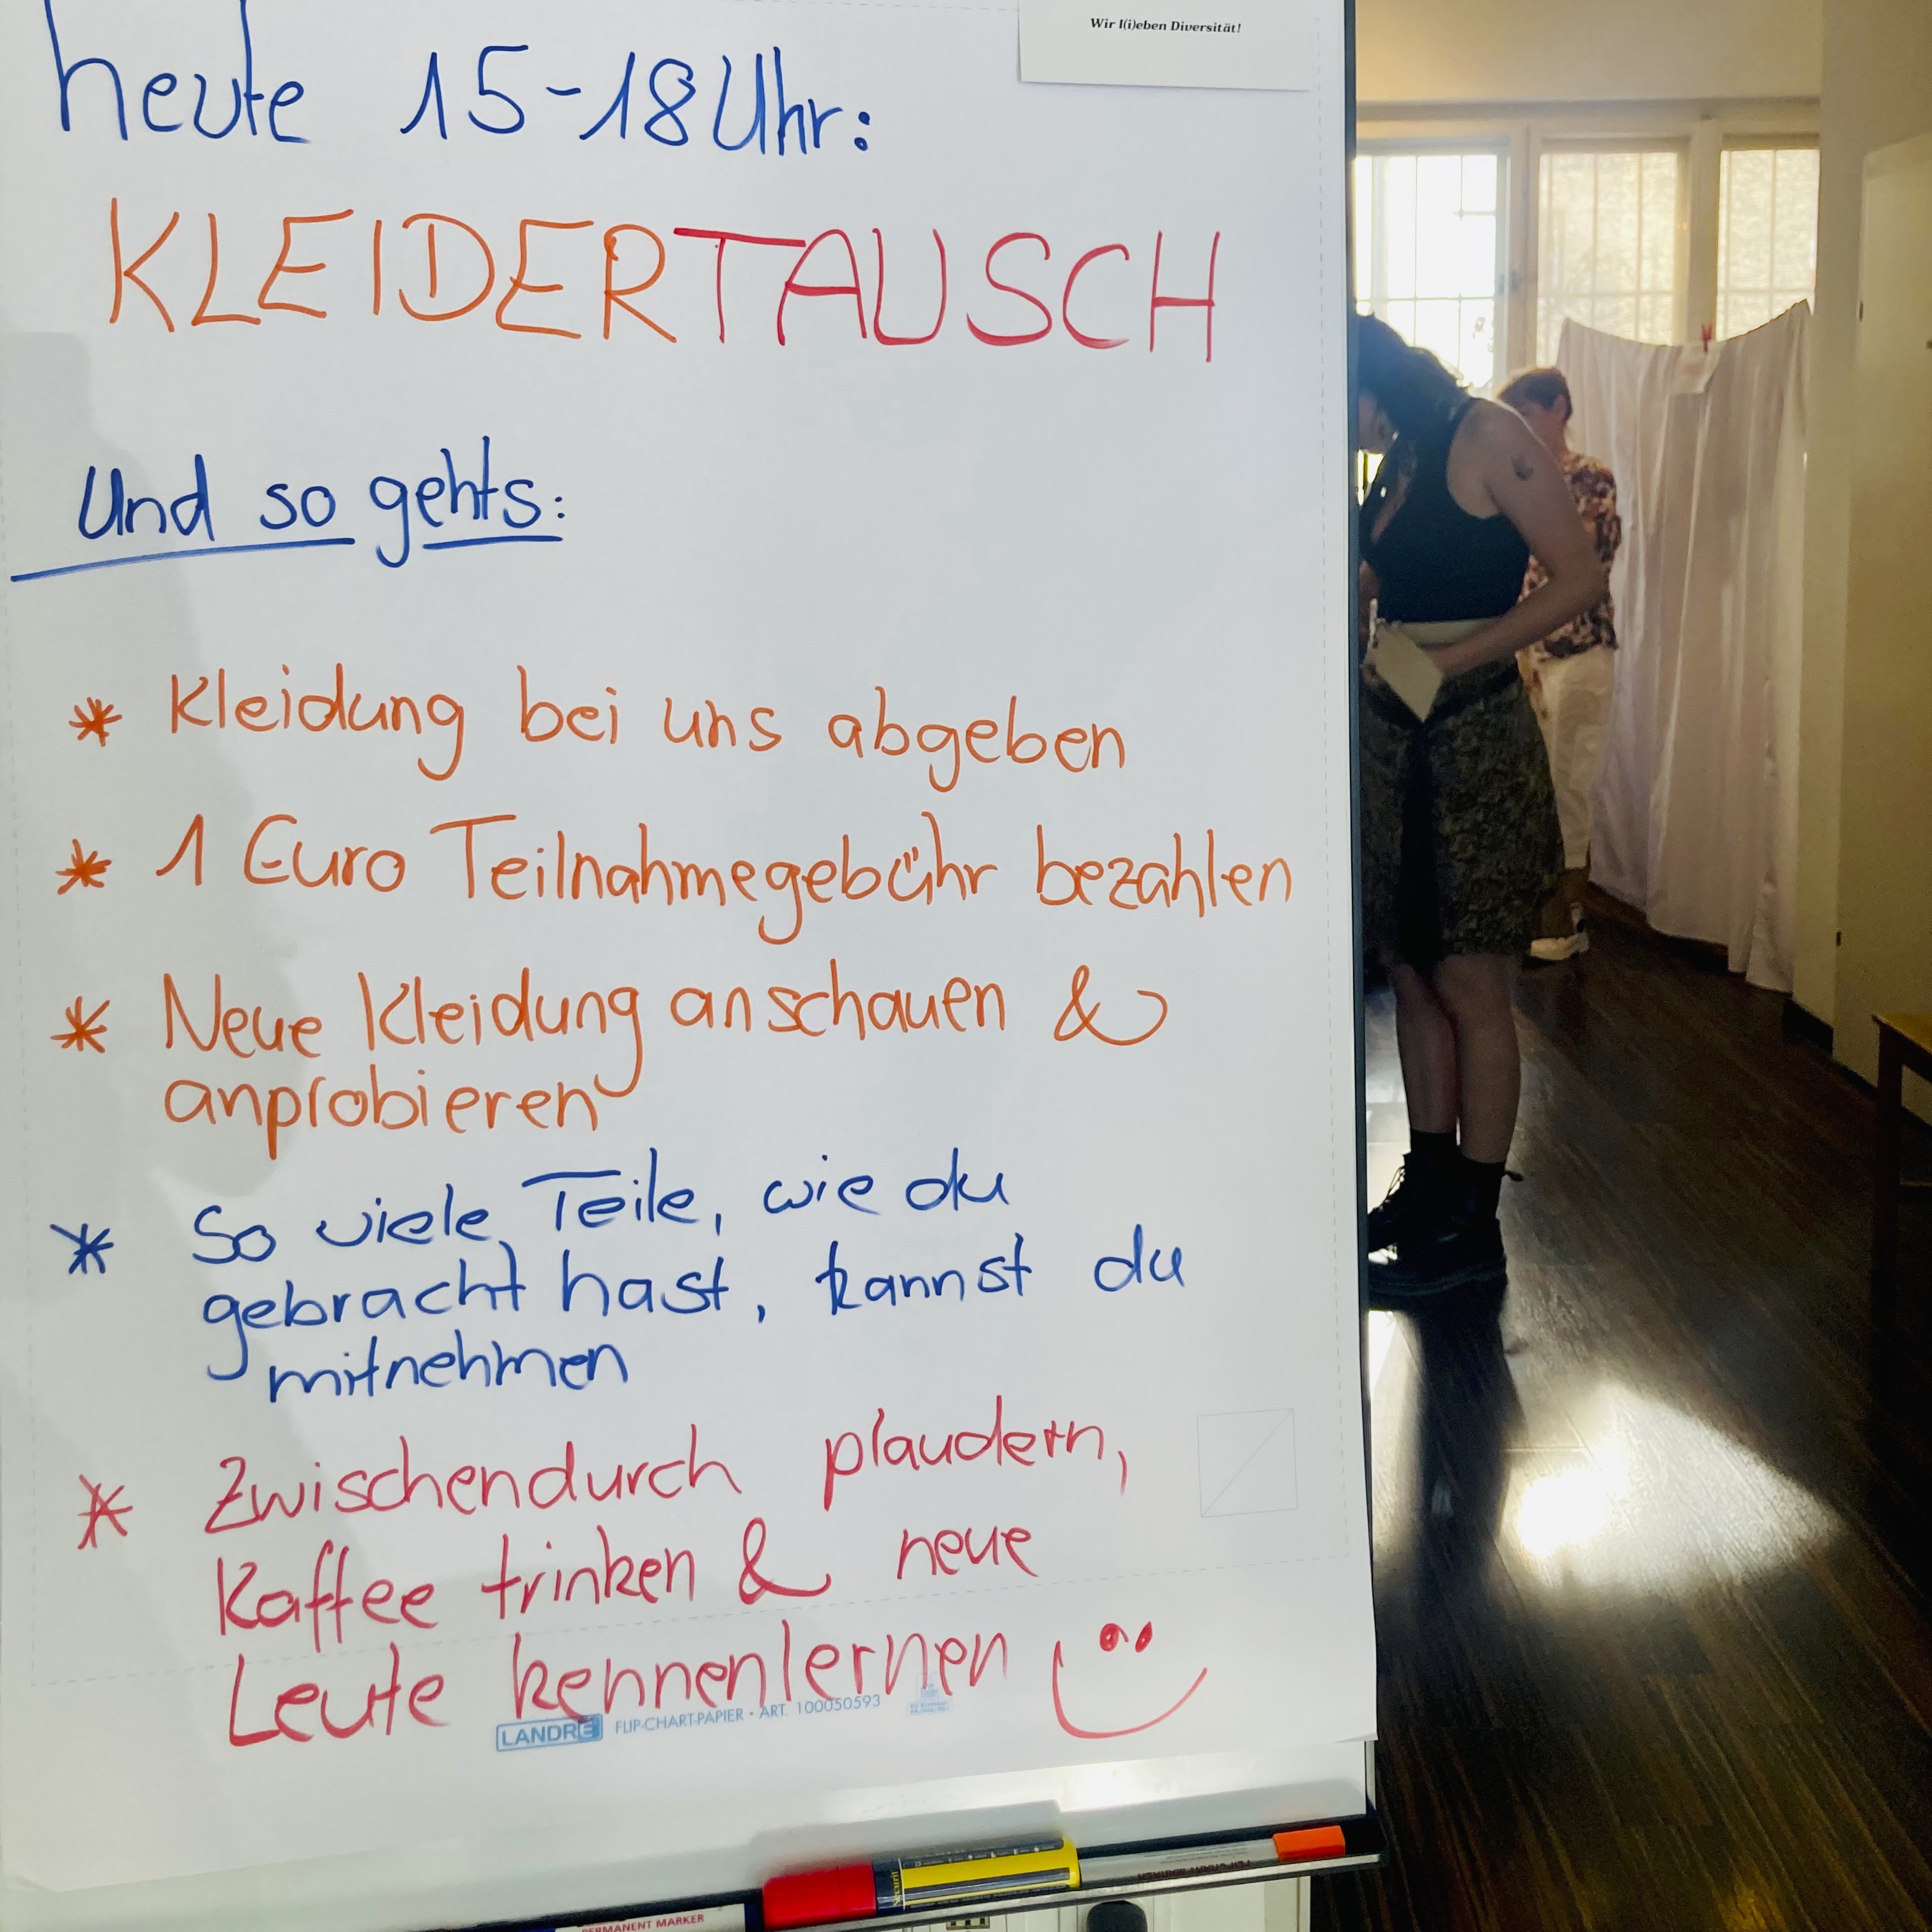 Wir l(i)eben Diversität!
heute 15-18 Uhr:
KLEIDERTAUSCH
Und so gehts:
* Kleidung bei uns abgeben
* 1 Euro Teilnahmegebühr bezahlen
* Neue Kleidung anschauen &
anprobieren
* So viele Teile, wie du
gebracht hast, kannst du
mitnehmen
* Zwischendurch plaudern,
Kaffee trinken & neue
Leute kennenlernen
LANDRÉ FLIP-CHART-PAPIER • ART. 100050593
PERMANENT MARKER